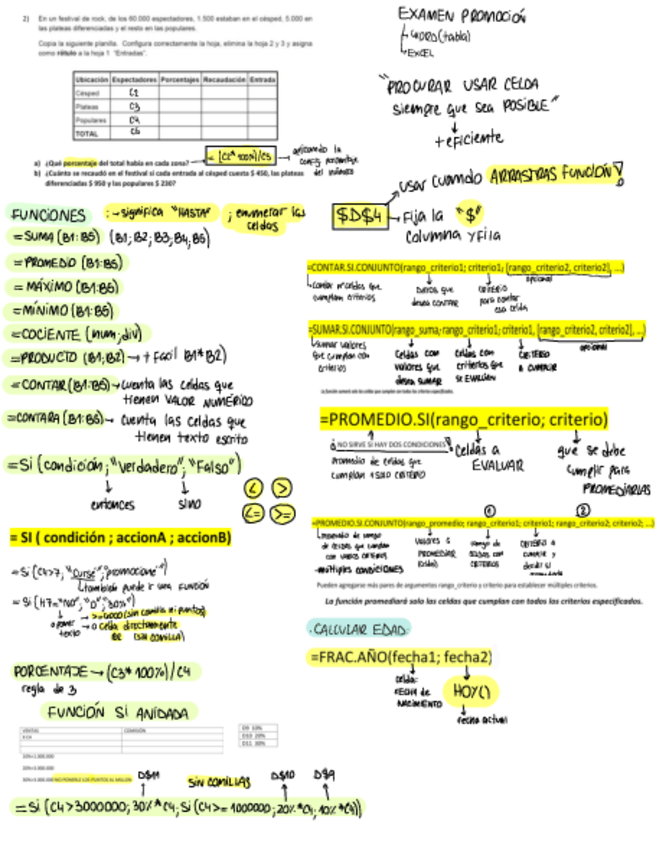 2) En un festival de rock, de los 60.000 espectadores, 1.500 estaban en el césped, 5.000 en
las plateas diferenciadas y el resto en las populares.
Copia la siguiente planilla. Configura correctamente la hoja, elimina la hoja 2 y 3 y asigna
como rótulo a la hoja 1 "Entradas".
Ubicación Espectadores Porcentajes Recaudación Entrada
Césped C2
Plateas C3
Populares C4
TOTAL
a) ¿Qué porcentaje del total había en cada zona? = (C2* 100%)/C5 → aplicando la config porcentaje del número
b) ¿Cuánto se recaudó en el festival si cada entrada al césped cuesta $ 450, las plateas
diferenciadas $ 950 y las populares $ 230?
FUNCIONES : → significa "HASTA" ; enumerar las celdas
=SUMA (B1:B5) (B1;B2;B3;B4;B5)
=PROMEDIO (B1:B5)
= MÁXIMO (B1:B5)
=MÍNIMO (B1:B5)
=COCIENTE (num;div)
=PRODUCTO (B1;B2) → + FÁCIL B1*B2)
=CONTAR (B1:B5) → cuenta las celdas que
tienen VALOR NUMÉRICO
=CONTARA (B1:B5) → cuenta las celdas que
tienen texto escrito
=Si (condición;"Verdadero";"Falso")
entonces sino
< >
<= >=
= SI ( condición ; accionA ; accionB)
=Si (C4>7; "Cursé";"promocioné")
también puede ir una FUNCIÓN
=Si (H7="NO";"0";"30%")
poner texto
→ o Celda directamente
(SIN COMILLA)
PORCENTAJE → (C3* 100%)/C4
regla de 3
FUNCIÓN SI ANIDADA
VENTAS COMISIÓN
D9 10%
D10 20%
D11 30%
NO PONERLE LOS PUNTOS AL MILLON
D$11 SIN COMILLAS D$10 D$9
=Si (C4>3000000;30%*C4;Si(C4>= 1000000;20%*C4;10%*C4))
EXAMEN PROMOCIÓN
→ WORD (tabla)
→ EXCEL
"PROCURAR USAR CELDA
siempre que sea POSIBLE"
+ eficiente
usar cuando ARRASTRAS FUNCIÓN!
$D$4 → Fija la "$"
columna y fila
=CONTAR.SI.CONJUNTO(rango_criterio1; criterio1; [rango_criterio2, criterio2], ...)
opcional
contar n° celdas que
cumplan criterios
DATOS que
desea CONTAR
CRITERIO
para contar
esa celda
=SUMAR.SI.CONJUNTO(rango_suma; rango_criterio1; criterio1, [rango_criterio2, criterio2], ...)
opcional
sumar valores
que cumplan con
criterios
Celdas con
valores que
desea SUMAR
Celdas con
criterios que
se EVALÚEN
CRITERIO
A CUMPLIR
=PROMEDIO.SI(rango_criterio; criterio)
¿NO SIRVE SI HAY DOS CONDICIONES?
promedio de celdas que
cumplan 1 SOLO CRITERIO
Celdas a
EVALUAR
que se debe
cumplir para
PROMEDIARLAS
1 2
=PROMEDIO.SI.CONJUNTO(rango_promedio; rango_criterio1; criterio1; rango_criterio2; criterio2; ...)
promedio de rango
de celdas que cumplan
con varios criterios
→ múltiples CONDICIONES
VALORES A
PROMEDIAR
(celdas)
rango de
celdas con
CRITERIOS
CRITERIO a
CUMPLIR y
Pueden agregarse más pares de argumentos rango_criterio y criterio para establecer múltiples criterios.
La función promediará solo las celdas que cumplan con todos los criterios especificados.
· CALCULAR EDAD:
=FRAC.AÑO(fecha1; fecha2)
celda:
FECHA de
NACIMIENTO
HOY()
fecha actual